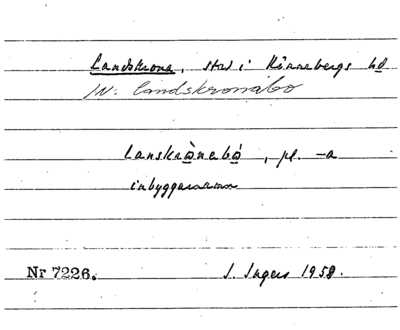 Landskrona, stad i Rönnebergs hd
IN: landskronabo
lanskrònabó, pl. -a
inbyggarna
Nr 7226.
I. Ingers 1958.